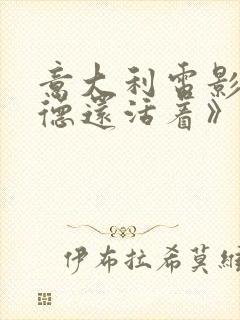 意大利电影
德还活着》
伊布拉希莫维